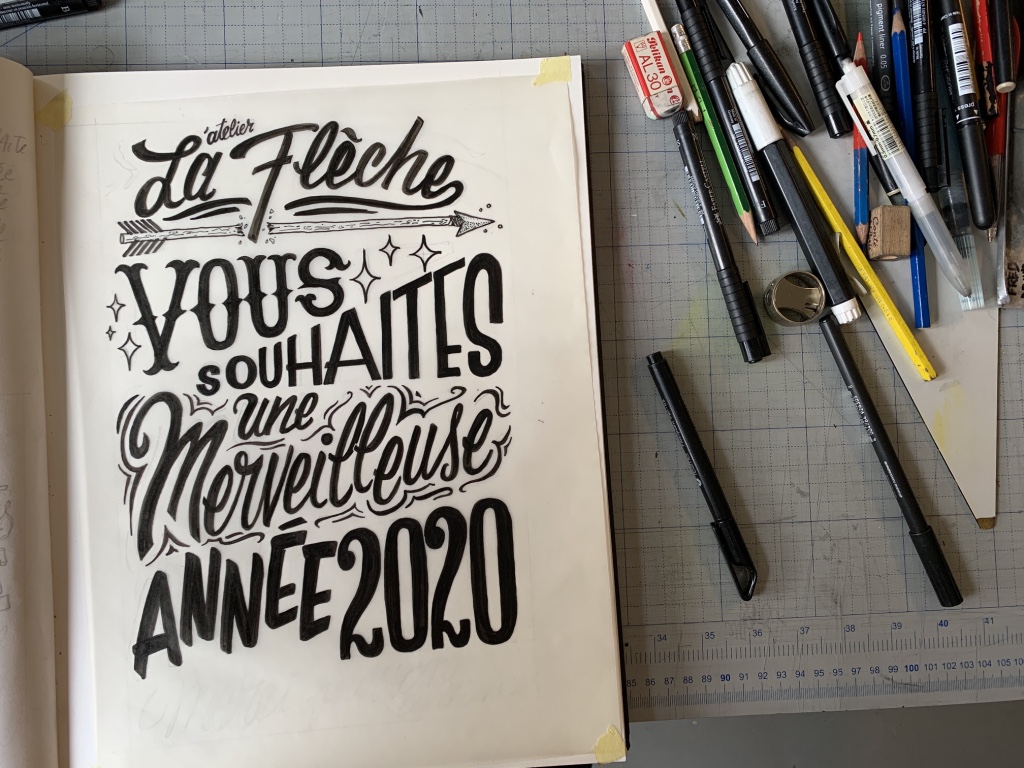 l'atelier
La Flèche
VOUS
SOUHAITES
une
Merveilleuse
ANNÉE 2020
Pelikan
AL 30
pigment liner 0.05
34 35 36 37 38 39 40 41
85 86 87 88 89 90 91 92 93 94 95 96 97 98 99 100 101 102 103 104